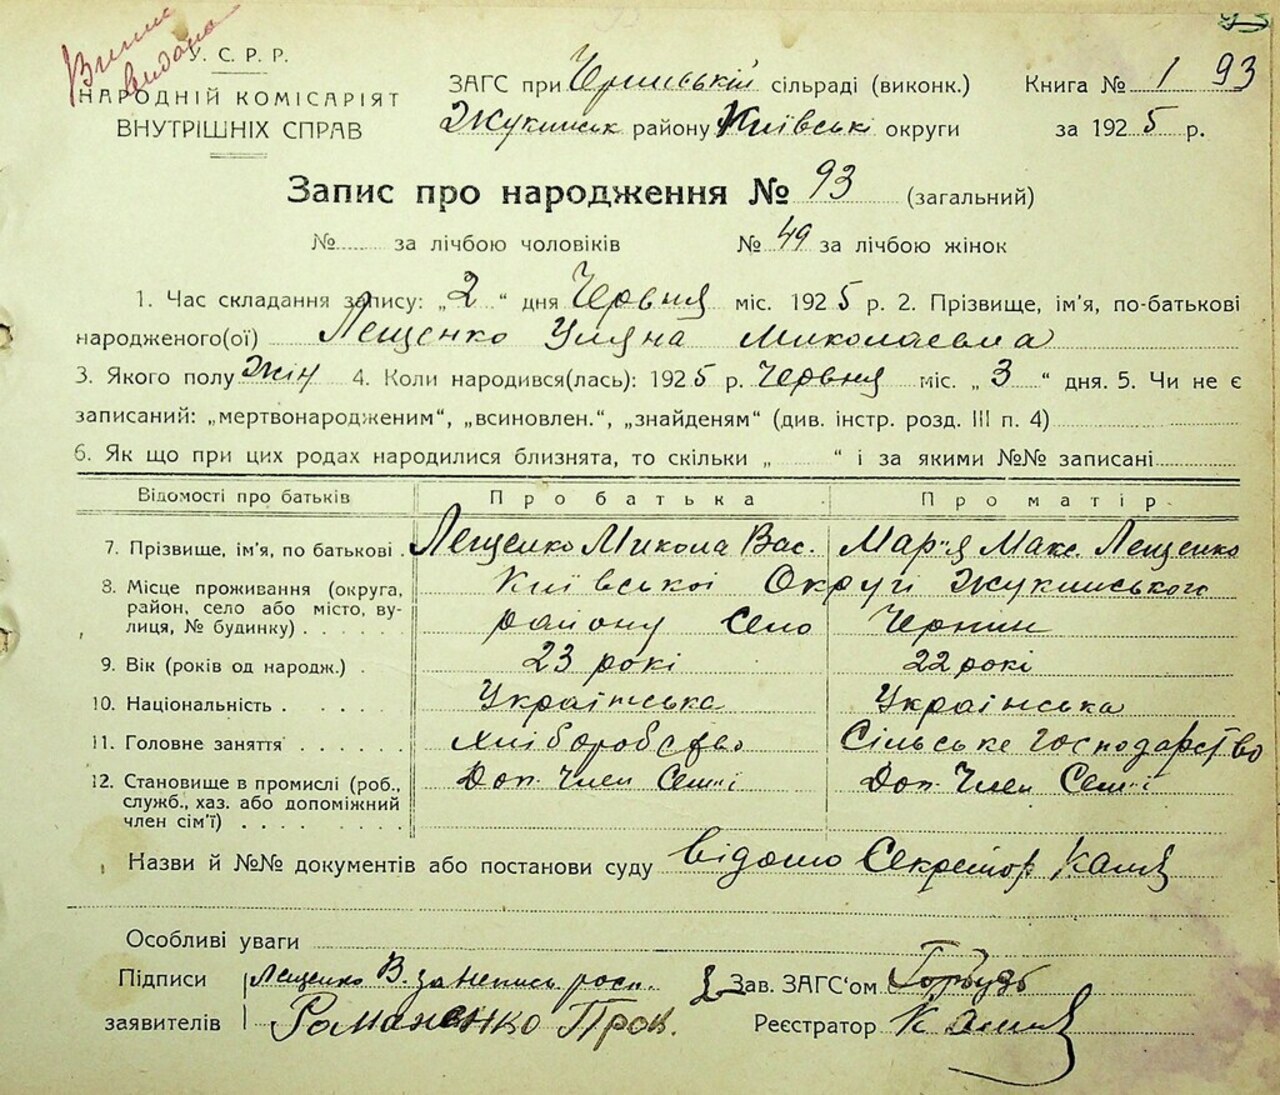 Випис
видано
У. С. Р. Р.
НАРОДНІЙ КОМІСАРІЯТ
ВНУТРІШНІХ СПРАВ
ЗАГС при Чернинській сільраді (виконк.)
Жукинськ району Київські округи
Книга № 1 93
за 1925 р.
Запис про народження № 93 (загальний)
№ за лічбою чоловіків № 49 за лічбою жінок
1. Час складання запису: „2“ дня Червня міс. 1925 р. 2. Прізвище, ім'я, по-батькові
народженого(ої) Лещенко Уляна Миколаевна
3. Якого полу Жін 4. Коли народився(лась): 1925 р. Червня міс. „3“ дня. 5. Чи не є
записаний: „мертвонародженим“, „всиновлен.“, „знайденям“ (див. інстр. розд. III п. 4)
6. Як що при цих родах народилися близнята, то скільки „ “ і за якими №№ записані
Відомості про батьків Про батька Про матір
7. Прізвище, ім'я, по батькові Лещенко Микола Вас. Мар'я Макс. Лещенко
8. Місце проживання (округа, Київської Округі Жукинського
район, село або місто, ву-
лиця, № будинку) району Село Чернин
9. Вік (років од народж.) 23 рокі 22 рокі
10. Національність Українська Українська
11. Головне заняття Хліборобство Сільське господарство
12. Становище в промислі (роб., Доп. Член Семї Доп. Член Семї
служб., хаз. або допоміжний
член сім'ї)
Назви й №№ документів або постанови суду відомо Секретар
Особливі уваги
Підписи Лещенко В. за
заявителів Романенко Прок.
Зав. ЗАГС'ом
Реєстратор